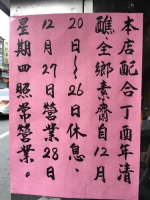 本店配合丁酉年清
醮、全鄉素齋自12月
20日～26日休息、
12月27日營業28日
星期四照常營業。